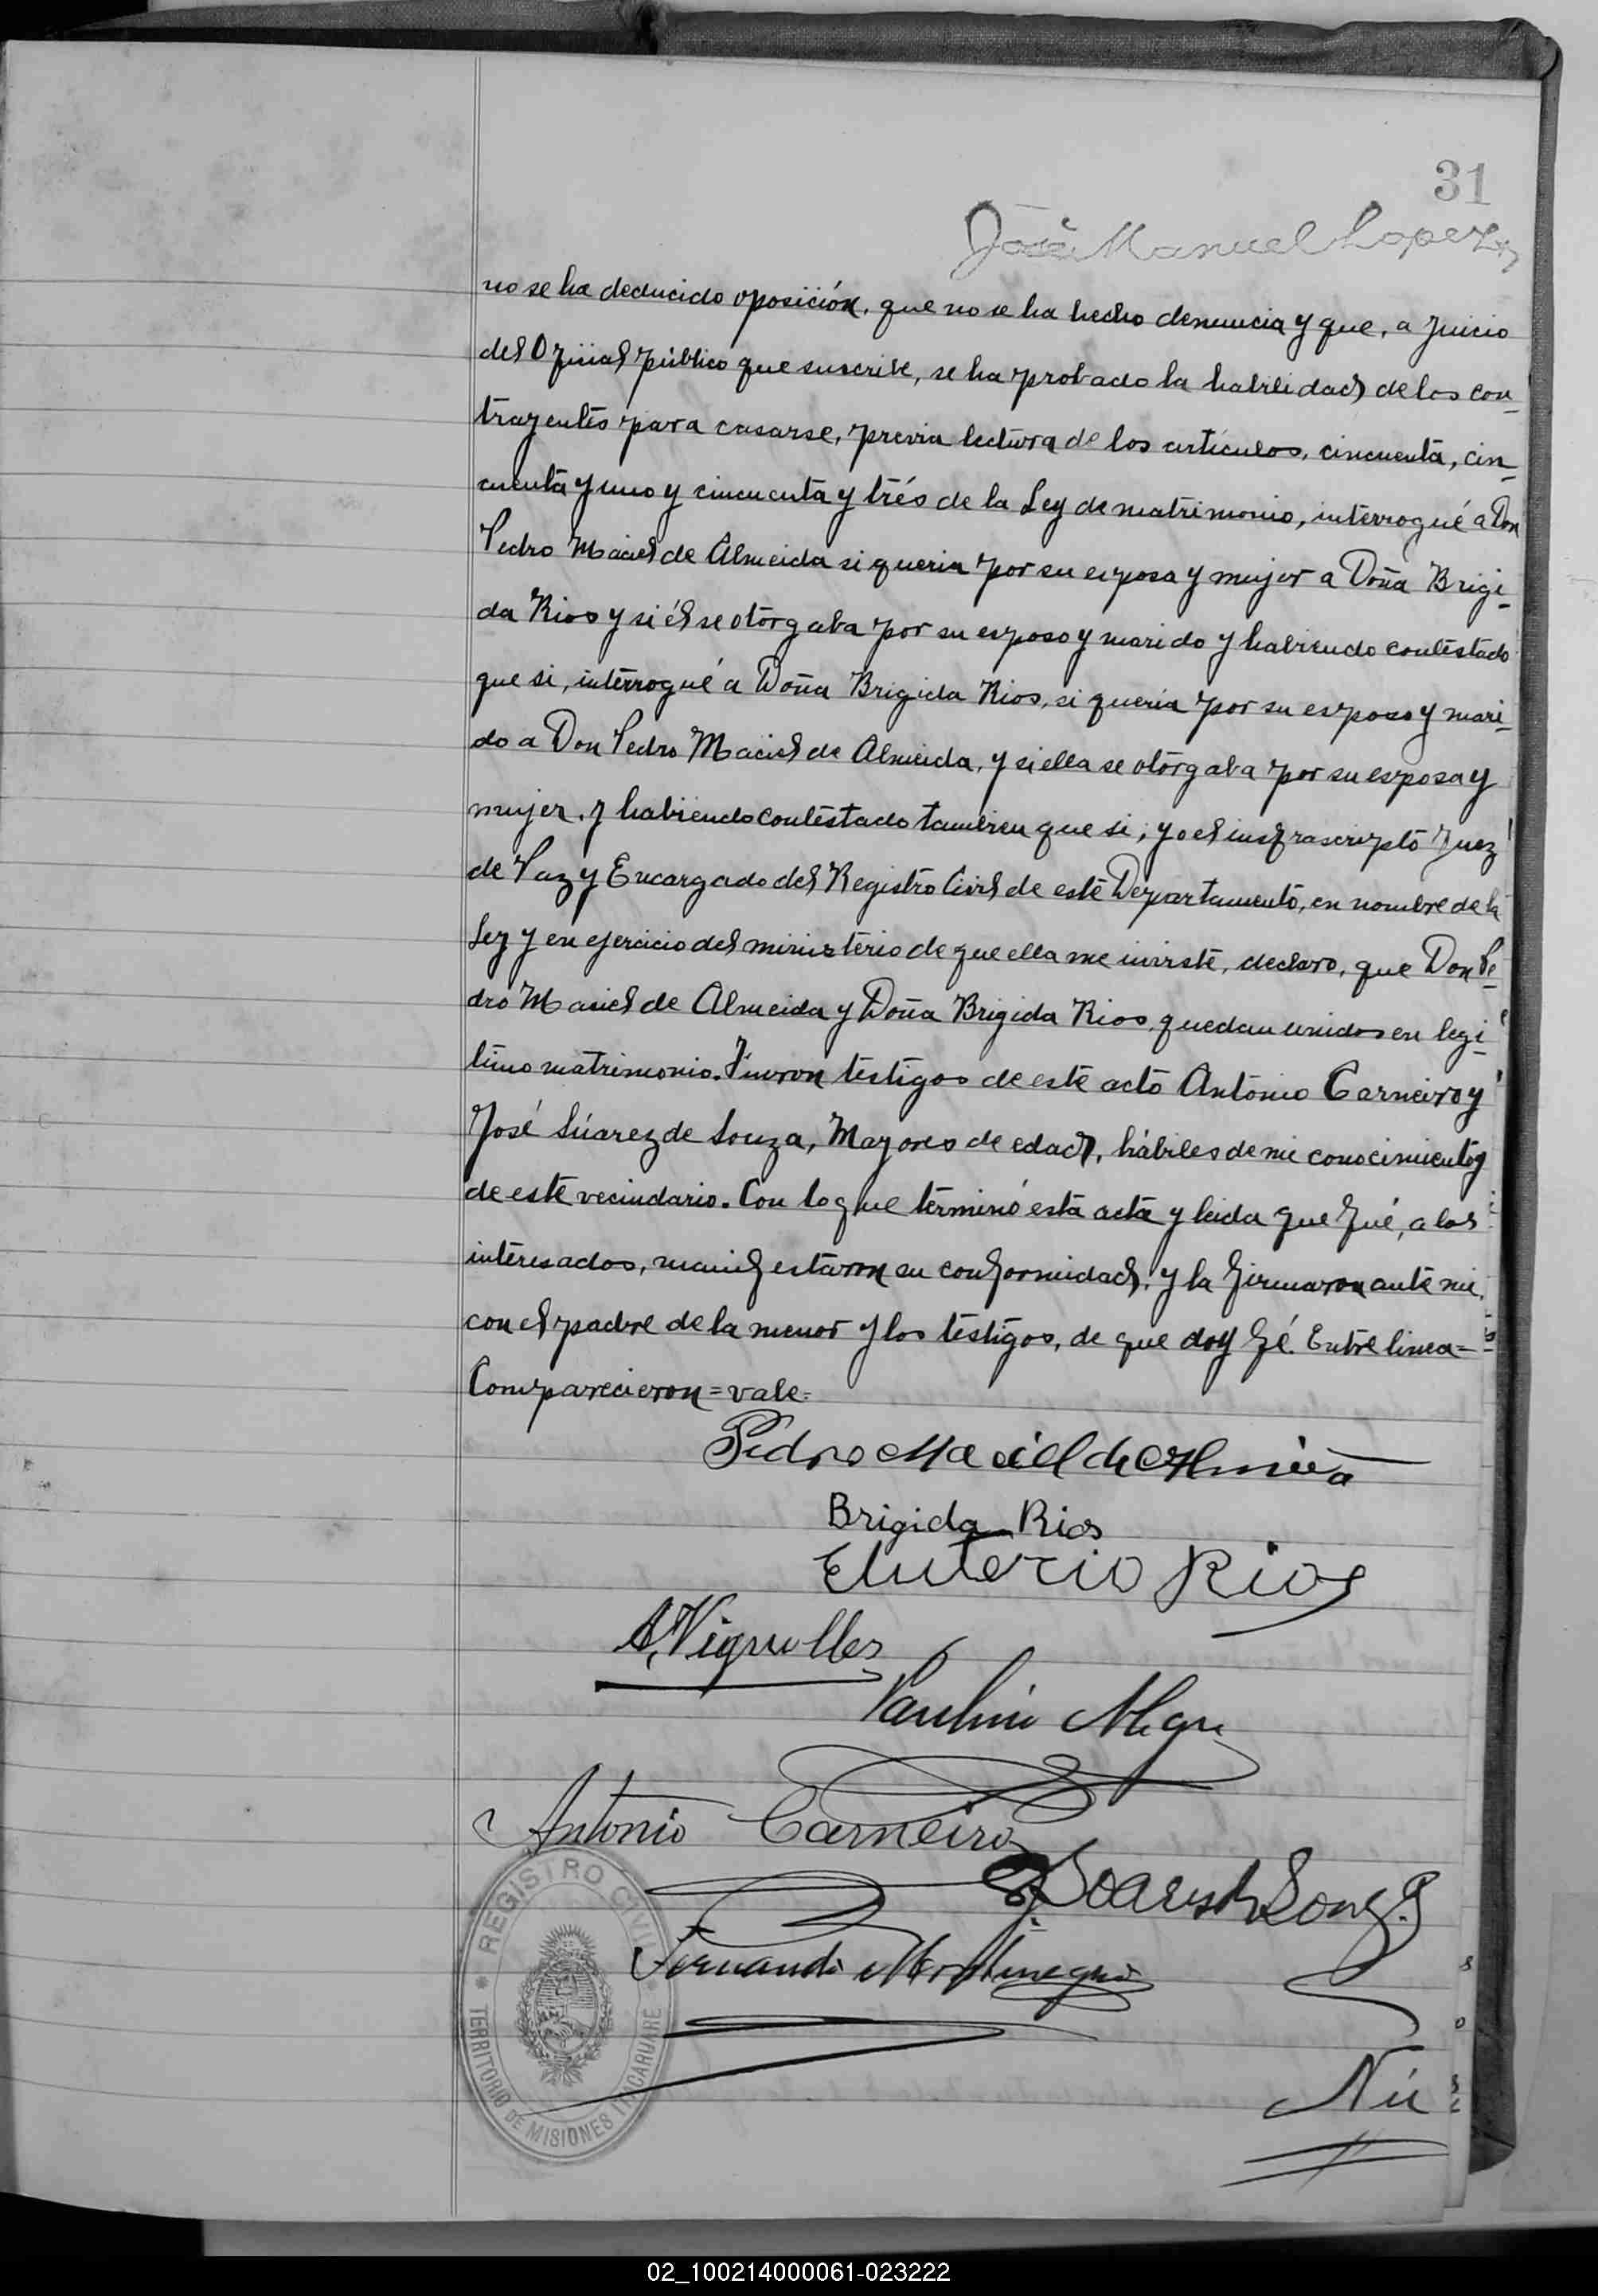 31
José Manuel Lopez
no se ha deducido oposición, que no se ha hecho denuncia y que, a juicio
del Oficial público que suscribe, se ha probado la habilidad de los con-
trayentes para casarse, previa lectura de los artículos, cincuenta, cin-
cuenta y uno y cincuenta y trés de la Ley de matrimonio, interrogué a Don
Pedro Maciel de Almeida si queria por su esposa y mujer a Doña Brigi-
da Rios y si él se otorgaba por su esposo y marido y habiendo contestado
que si, interrogué a Doña Brigida Rios, si queria por su esposo y mari-
do a Don Pedro Maciel de Almeida, y si ella se otorgaba por su esposa y
mujer. y habiendo contestado tambien que si; yo el insfrascripto Juez
de Paz y Encargado del Registro Civil de este Departamento, en nombre de la
Ley y en ejercicio del ministerio de que ella me inviste, declaro, que Don Pe-
dro Maciel de Almeida y Doña Brigida Rios, quedan unidos en legi-
timo matrimonio. Fueron testigos de este acto Antonio Carneiro y
José Súarez de Souza, Mayores de edad, hábiles de mi conocimiento y
de este vecindario. Con lo que terminó esta acta y leida que fué, a los
interesados, manifestaron su conformidad, y la firmaron ante mi,
con el padre de la menor y los testigos, de que doy fé. Entre linea=
Comparecieron=vale=
Pedro Maciel de Almeida
Brigida Rios
Eluterio Rios
A. Vignolles
Paulino Alegre
Antonio Carneiro
J. Soares de Souza
Fernando
REGISTRO CIVIL
TERRITORIO DE MISIONES
Nú
02_100214000061-023222